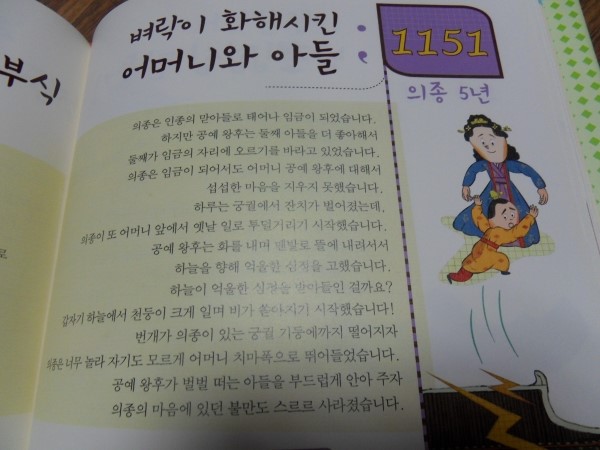 부식
로
벼락이 화해시킨
어머니와 아들
1151
의종 5년
의종은 인종의 맏아들로 태어나 임금이 되었습니다.
하지만 공예 왕후는 둘째 아들을 더 좋아해서
둘째가 임금의 자리에 오르기를 바라고 있었습니다.
의종은 임금이 되어서도 어머니 공예 왕후에 대해서
섭섭한 마음을 지우지 못했습니다.
하루는 궁궐에서 잔치가 벌어졌는데,
의종이 또 어머니 앞에서 옛날 일로 투덜거리기 시작했습니다.
공예 왕후는 화를 내며 맨발로 뜰에 내려서서
하늘을 향해 억울한 심정을 고했습니다.
하늘이 억울한 심정을 받아들인 걸까요?
갑자기 하늘에서 천둥이 크게 일며 비가 쏟아지기 시작했습니다!
번개가 의종이 있는 궁궐 기둥에까지 떨어지자
의종은 너무 놀라 자기도 모르게 어머니 치마폭으로 뛰어들었습니다.
공예 왕후가 벌벌 떠는 아들을 부드럽게 안아 주자
의종의 마음에 있던 불만도 스르르 사라졌습니다.